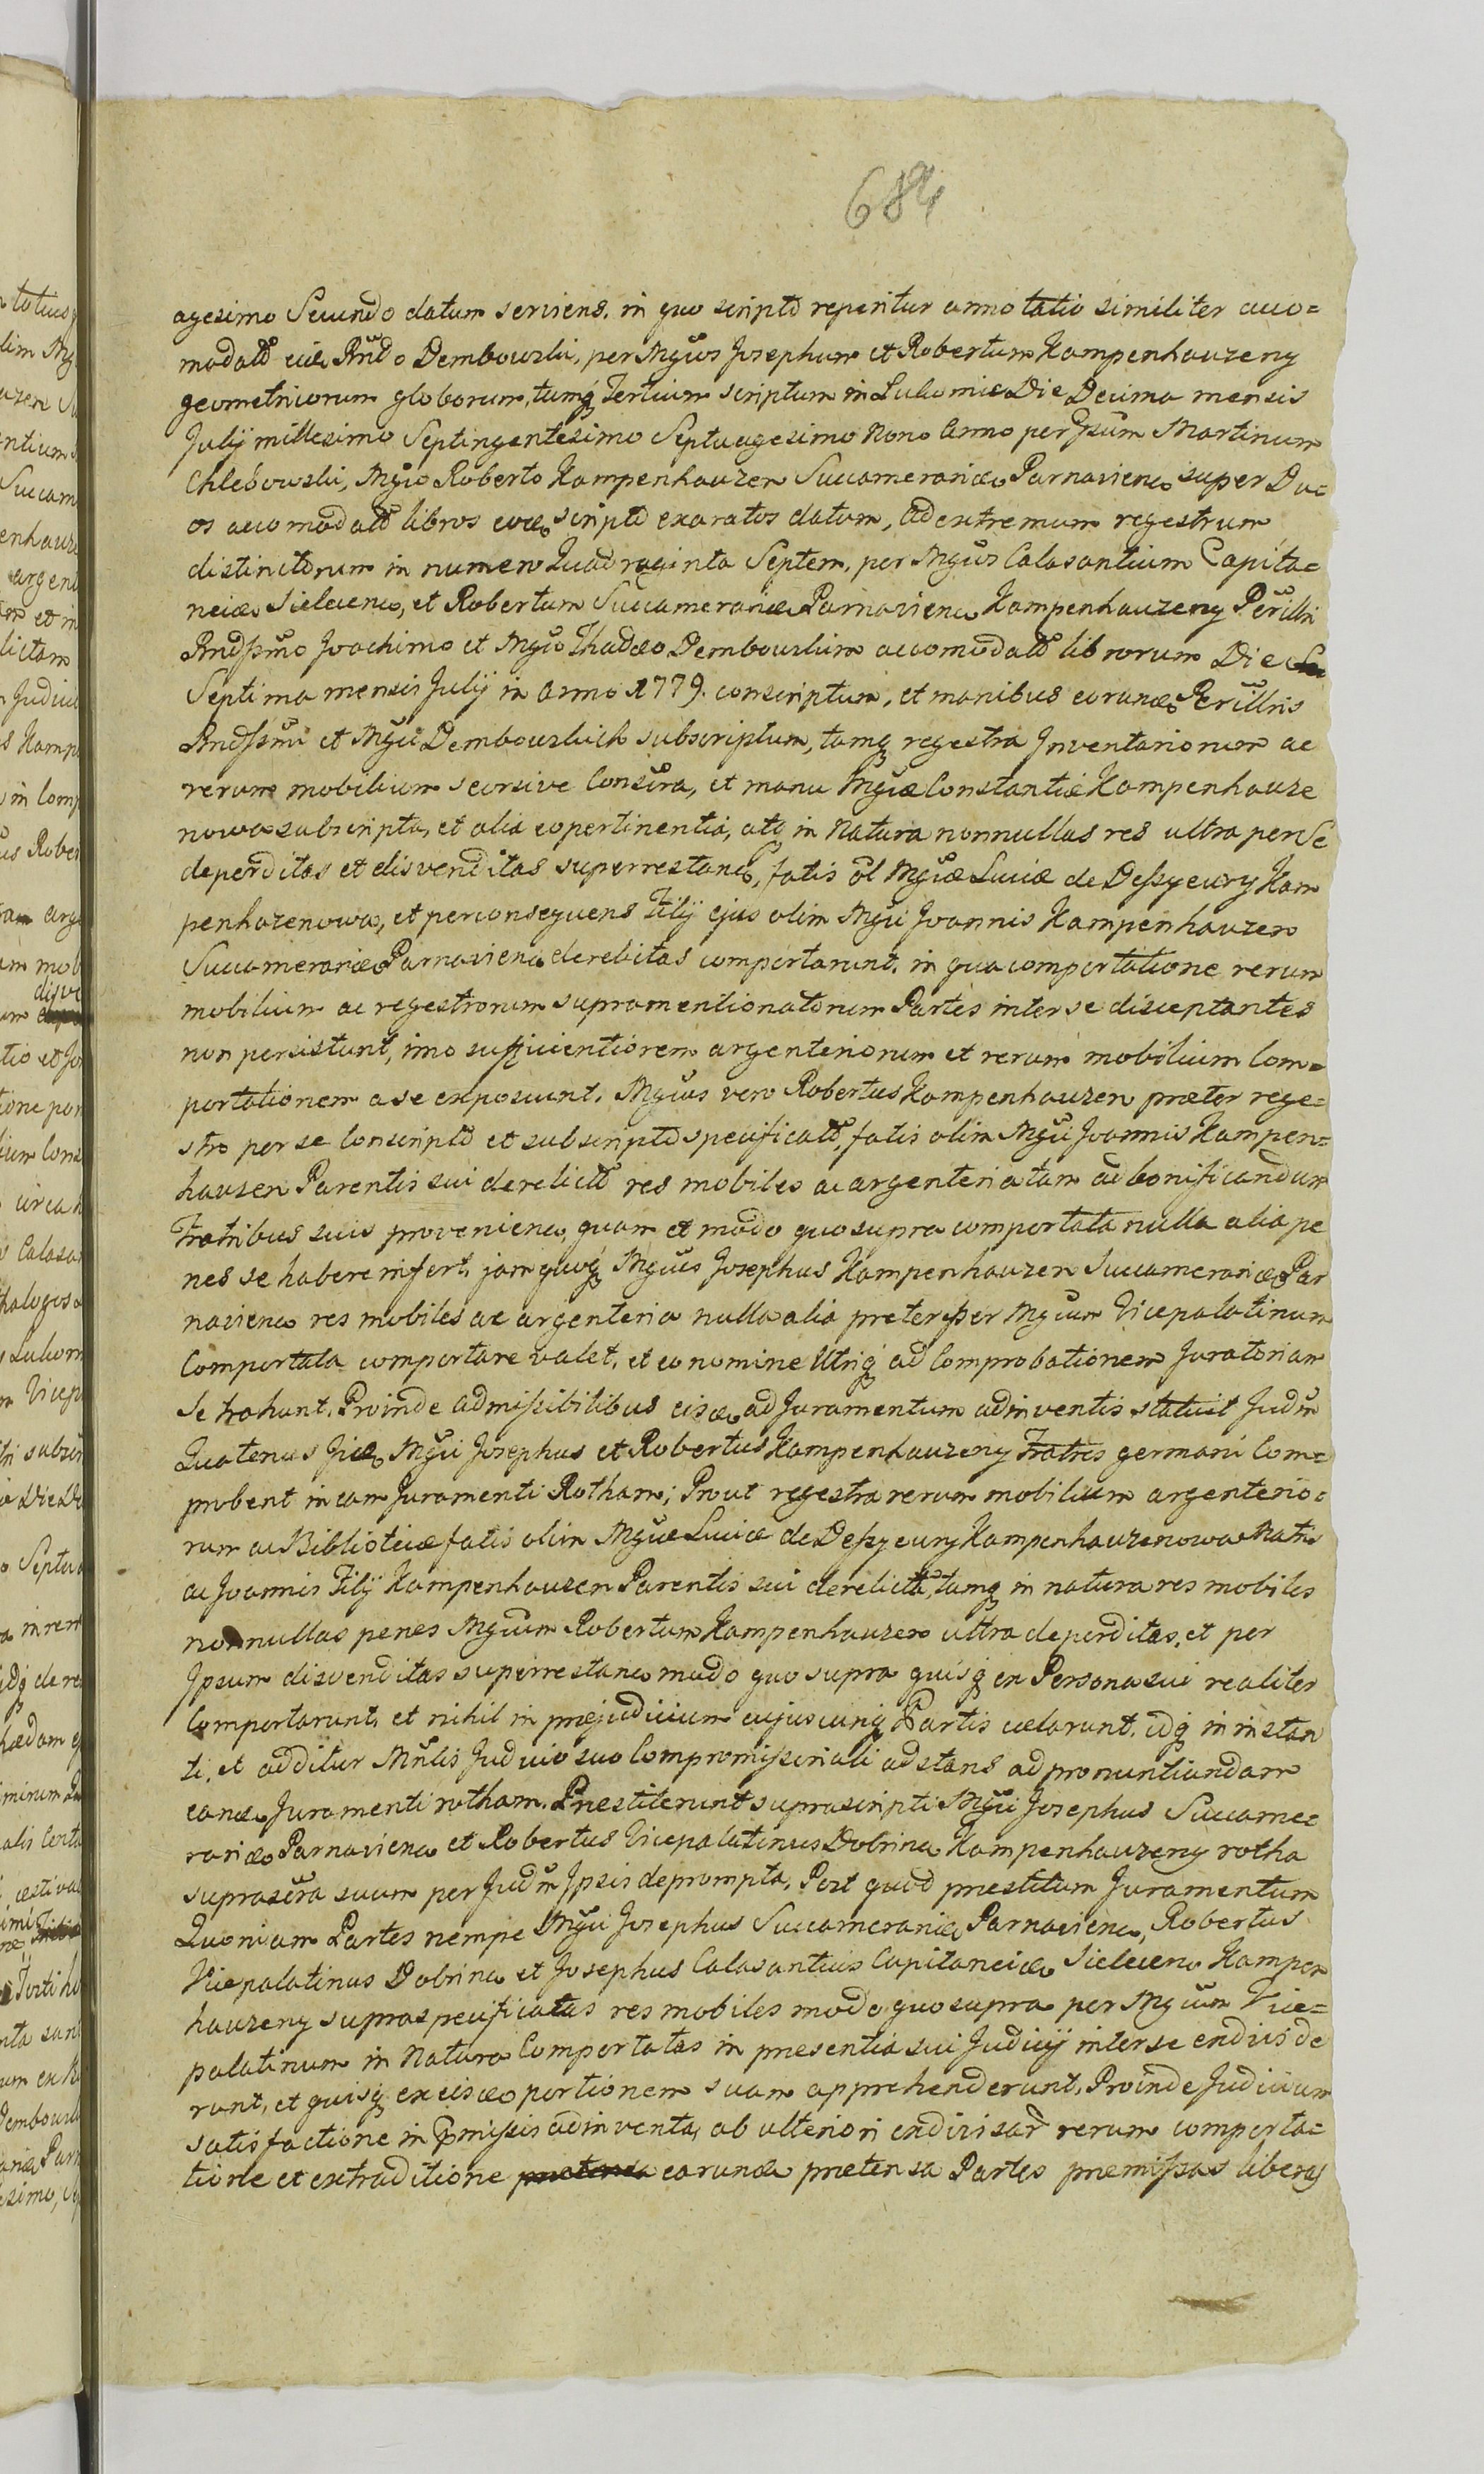 684
agesimo Secundo datum serviens. in quo scripto reperitur annotatio similiter acco=
modato eide Rndo Dembowski, per Mgcos Josephum et Robertum Kampenhauzeny
geometricorum globorum, tumq Tertium scriptum in Lukomie Die Decima mensis
Julij millesimo Septingentesimo Septuagesimo Nono Anno per Ipsum Martinum
Chlebowski, Mgco Roberto Kampenhauzen Succamerariae Parnavienc super Du=
os accomodato libros eode scripto exaratos datum, Ad extremum regestrum
distinctorum in numero Quadraginta Septem, per Mgcos Calasantium Capita=
neidae Sielecienc, et Robertum Succamerariae Parnavienc Kampenhauzeny Perilli
Rndssimo Joachimo et Mgco Thadaeo Dembowskim accomodato librorum Die
Septima mensis Julij in Anno 1779. conscriptum, et manibus eorundem Perillris
Rndssimi et Mgci Dembowskich subscriptum, tamq regestra Inventariorum ac
rerum mobilium seorsive Conscra, et manu Mgcae Constantiae Kampenhauze
nowa subscripta, et alia eo pertinentia, atq in Natura nonnullas res ultra per Se
deperditas et disvenditas superrestanc, fatis ol Mgcae Luciae de Deszyeury Kam
penhazenowa, et per consequens Filij ejus olim Mgci Joannis Kampenhauzen
Succamerariae Parnavienc derelictas comportarunt. in qua comportatione rerum
mobilium ac regestrorum supramentionatorum Partes inter se disceptantes
non persistunt, imo sufficientiorem argenteriorum et rerum mobilium Com=
portationem a se exposcunt. Mgcus vero Robertus Kampenhauzen praeter rege=
stro per se Conscripto et subscripto specificato, fatis olim Mgci Joannis Kampen=
hauzen Parentis sui derelicto res mobiles ac argenteria tam ad bonificandum
Fratribus suis provenienc, quam et modo quo supra comportata nulla alia pe
nes se habere infert, jam quoq Mgcus Josephus Kampenhauzen Succamerariae Par
navienc res mobiles ac argenteria nulla alia preter per Mgcum Vicepalatinum
Comportata comportare valet, et eo nomine Utriq ad Comprobationem Juratoriam
Se trahunt. Proinde admissibilibus eisdem ad Juramentum adinventis statuit Judm
Quatenus Iidem Mgci Josephus et Robertus Kampenhauzeny Fratres germani Com=
probent in eam Juramenti Rotham; Prout regestra rerum mobilium argenterio=
rum ac Bibliotecae fatis olim Mgcae Luciae de Deszyeury Kampenhauzenowa Matris
ac Joannis Filij Kampenhauzen Parentis sui derelicta, tamq in natura res mobiles
nonnullas penes Mgcum Robertum Kampenhauzen ultra deperditas, et per
Ipsum disvenditas superrestanc modo quo supra quisq ex Persona sui realiter
Comportarunt, et nihil in praejudicium cujuscunq Partis celarunt. idq in instan
ti, et additur Mnlis Judicio suo Compromissoriali adstans ad pronuntiandam
eandem Juramenti rotham. Prestiterunt suprascripti Mgci Josephus Succame=
rariae Parnavienc et Robertus Vicepalatinus Dobrinc Kampenhauzeny rotha
suprascra suum per Judm Ipsis deprompta, Post quod prestitum Juramentum
Quoniam Partes nempe Mgci Josephus Succamerariae Parnavienc, Robertus
Vicepalatinus Dobrinc et Josephus Calasantius Capitaneidae Sielecienc Kampen
hauzeny supraspecificatas res mobiles modo quo supra per Mgcum Vice=
palatinum in Natura Comportatas in presentia sui Judicij inter se exdivise
runt, et quisq ex eisdem portionem suam apprehenderunt, Proinde Judicium
satisfactione in Pmissis adinventa, ab ulteriori exdivisar rerum comporta=
tione et extraditione earundem pretensa Partes premissas liberas